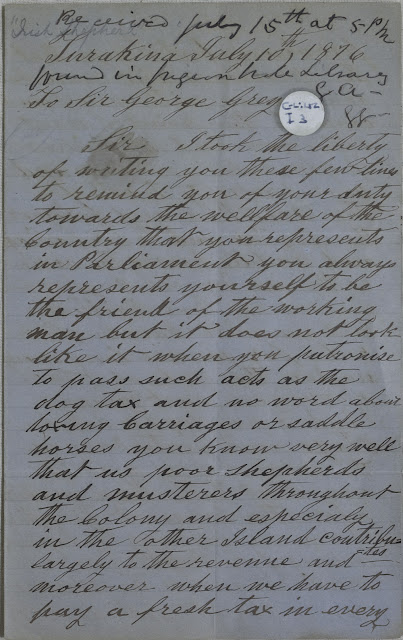 "Irish Shepherd"
Received July 15th at 5 Pm
July 10th, 1876
found in pigeon hole Library
To Sir George Grey
GL:Z42
I 3
Sir I took the liberty
of writing you these few lines
to remind you of your duty
towards the wellfare of the
Country that you represents
in Parliament you always
represents yourself to be
the friend of the working
man but it does not look
like it when you patronise
to pass such acts as the
dog tax and no word about
Carriages or saddle
horses you know very well
that us poor shepherds
and musterers throughout
the Colony and especialy
in the other Island contributes
largely to the revenue and
moreover when we have to
pay a fresh tax in every